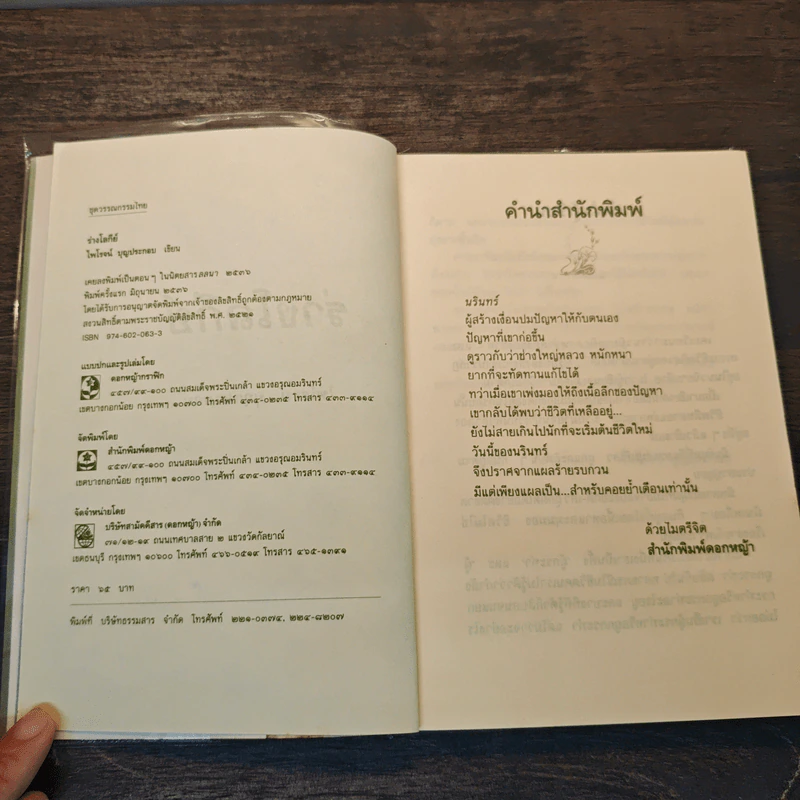 ชุดวรรณกรรมไทย
ร่างโลกีย์
ไพโรจน์ บุญประกอบ เขียน
เคยลงพิมพ์เป็นตอนๆ ในนิตยสารลลนา ๒๕๓๖
พิมพ์ครั้งแรก มิถุนายน ๒๕๓๖
โดยได้รับการอนุญาตจัดพิมพ์จากเจ้าของลิขสิทธิ์ถูกต้องตามกฎหมาย
สงวนสิทธิ์ตามพระราชบัญญัติลิขสิทธิ์ พ.ศ. ๒๕๒๑
ISBN 974-602-063-3
แบบปกและรูปเล่มโดย
ดอกหญ้ากราฟิก
๔๕๗/๙๙-๑๐๐ ถนนสมเด็จพระปิ่นเกล้า แขวงอรุณอมรินทร์
เขตบางกอกน้อย กรุงเทพฯ ๑๐๗๐๐ โทรศัพท์ ๔๓๔-๐๒๓๕ โทรสาร ๔๓๓-๙๑๑๔
จัดพิมพ์โดย
สำนักพิมพ์ดอกหญ้า
๔๕๗/๙๙-๑๐๐ ถนนสมเด็จพระปิ่นเกล้า แขวงอรุณอมรินทร์
เขตบางกอกน้อย กรุงเทพฯ ๑๐๗๐๐ โทรศัพท์ ๔๓๔-๐๒๓๕ โทรสาร ๔๓๓-๙๑๑๔
จัดจำหน่ายโดย
บริษัทสามัคคีสาร (ดอกหญ้า) จำกัด
๗๑/๑๒-๑๙ ถนนเทศบาลสาย ๒ แขวงวัดกัลยาณ์
เขตธนบุรี กรุงเทพฯ ๑๐๖๐๐ โทรศัพท์ ๔๖๖-๐๕๑๙ โทรสาร ๔๖๕-๑๓๙๑
ราคา ๖๕ บาท
พิมพ์ที่ บริษัทธรรมสาร จำกัด โทรศัพท์ ๒๒๑-๐๓๗๔, ๒๒๔-๘๒๐๗
คำนำสำนักพิมพ์
นรินทร์
ผู้สร้างเงื่อนปมปัญหาให้กับตนเอง
ปัญหาที่เขาก่อขึ้น
ดูราวกับว่าช่างใหญ่หลวง หนักหนา
ยากที่จะทัดทานแก้ไขได้
ทว่าเมื่อเขาเพ่งมองให้ถึงเนื้อลึกของปัญหา
เขากลับได้พบว่าชีวิตที่เหลืออยู่...
ยังไม่สายเกินไปนักที่จะเริ่มต้นชีวิตใหม่
วันนี้ของนรินทร์
จึงปราศจากแผลร้ายรบกวน
มีแต่เพียงแผลเป็น...สำหรับคอยย้ำเตือนเท่านั้น
ด้วยไมตรีจิต
สำนักพิมพ์ดอกหญ้า